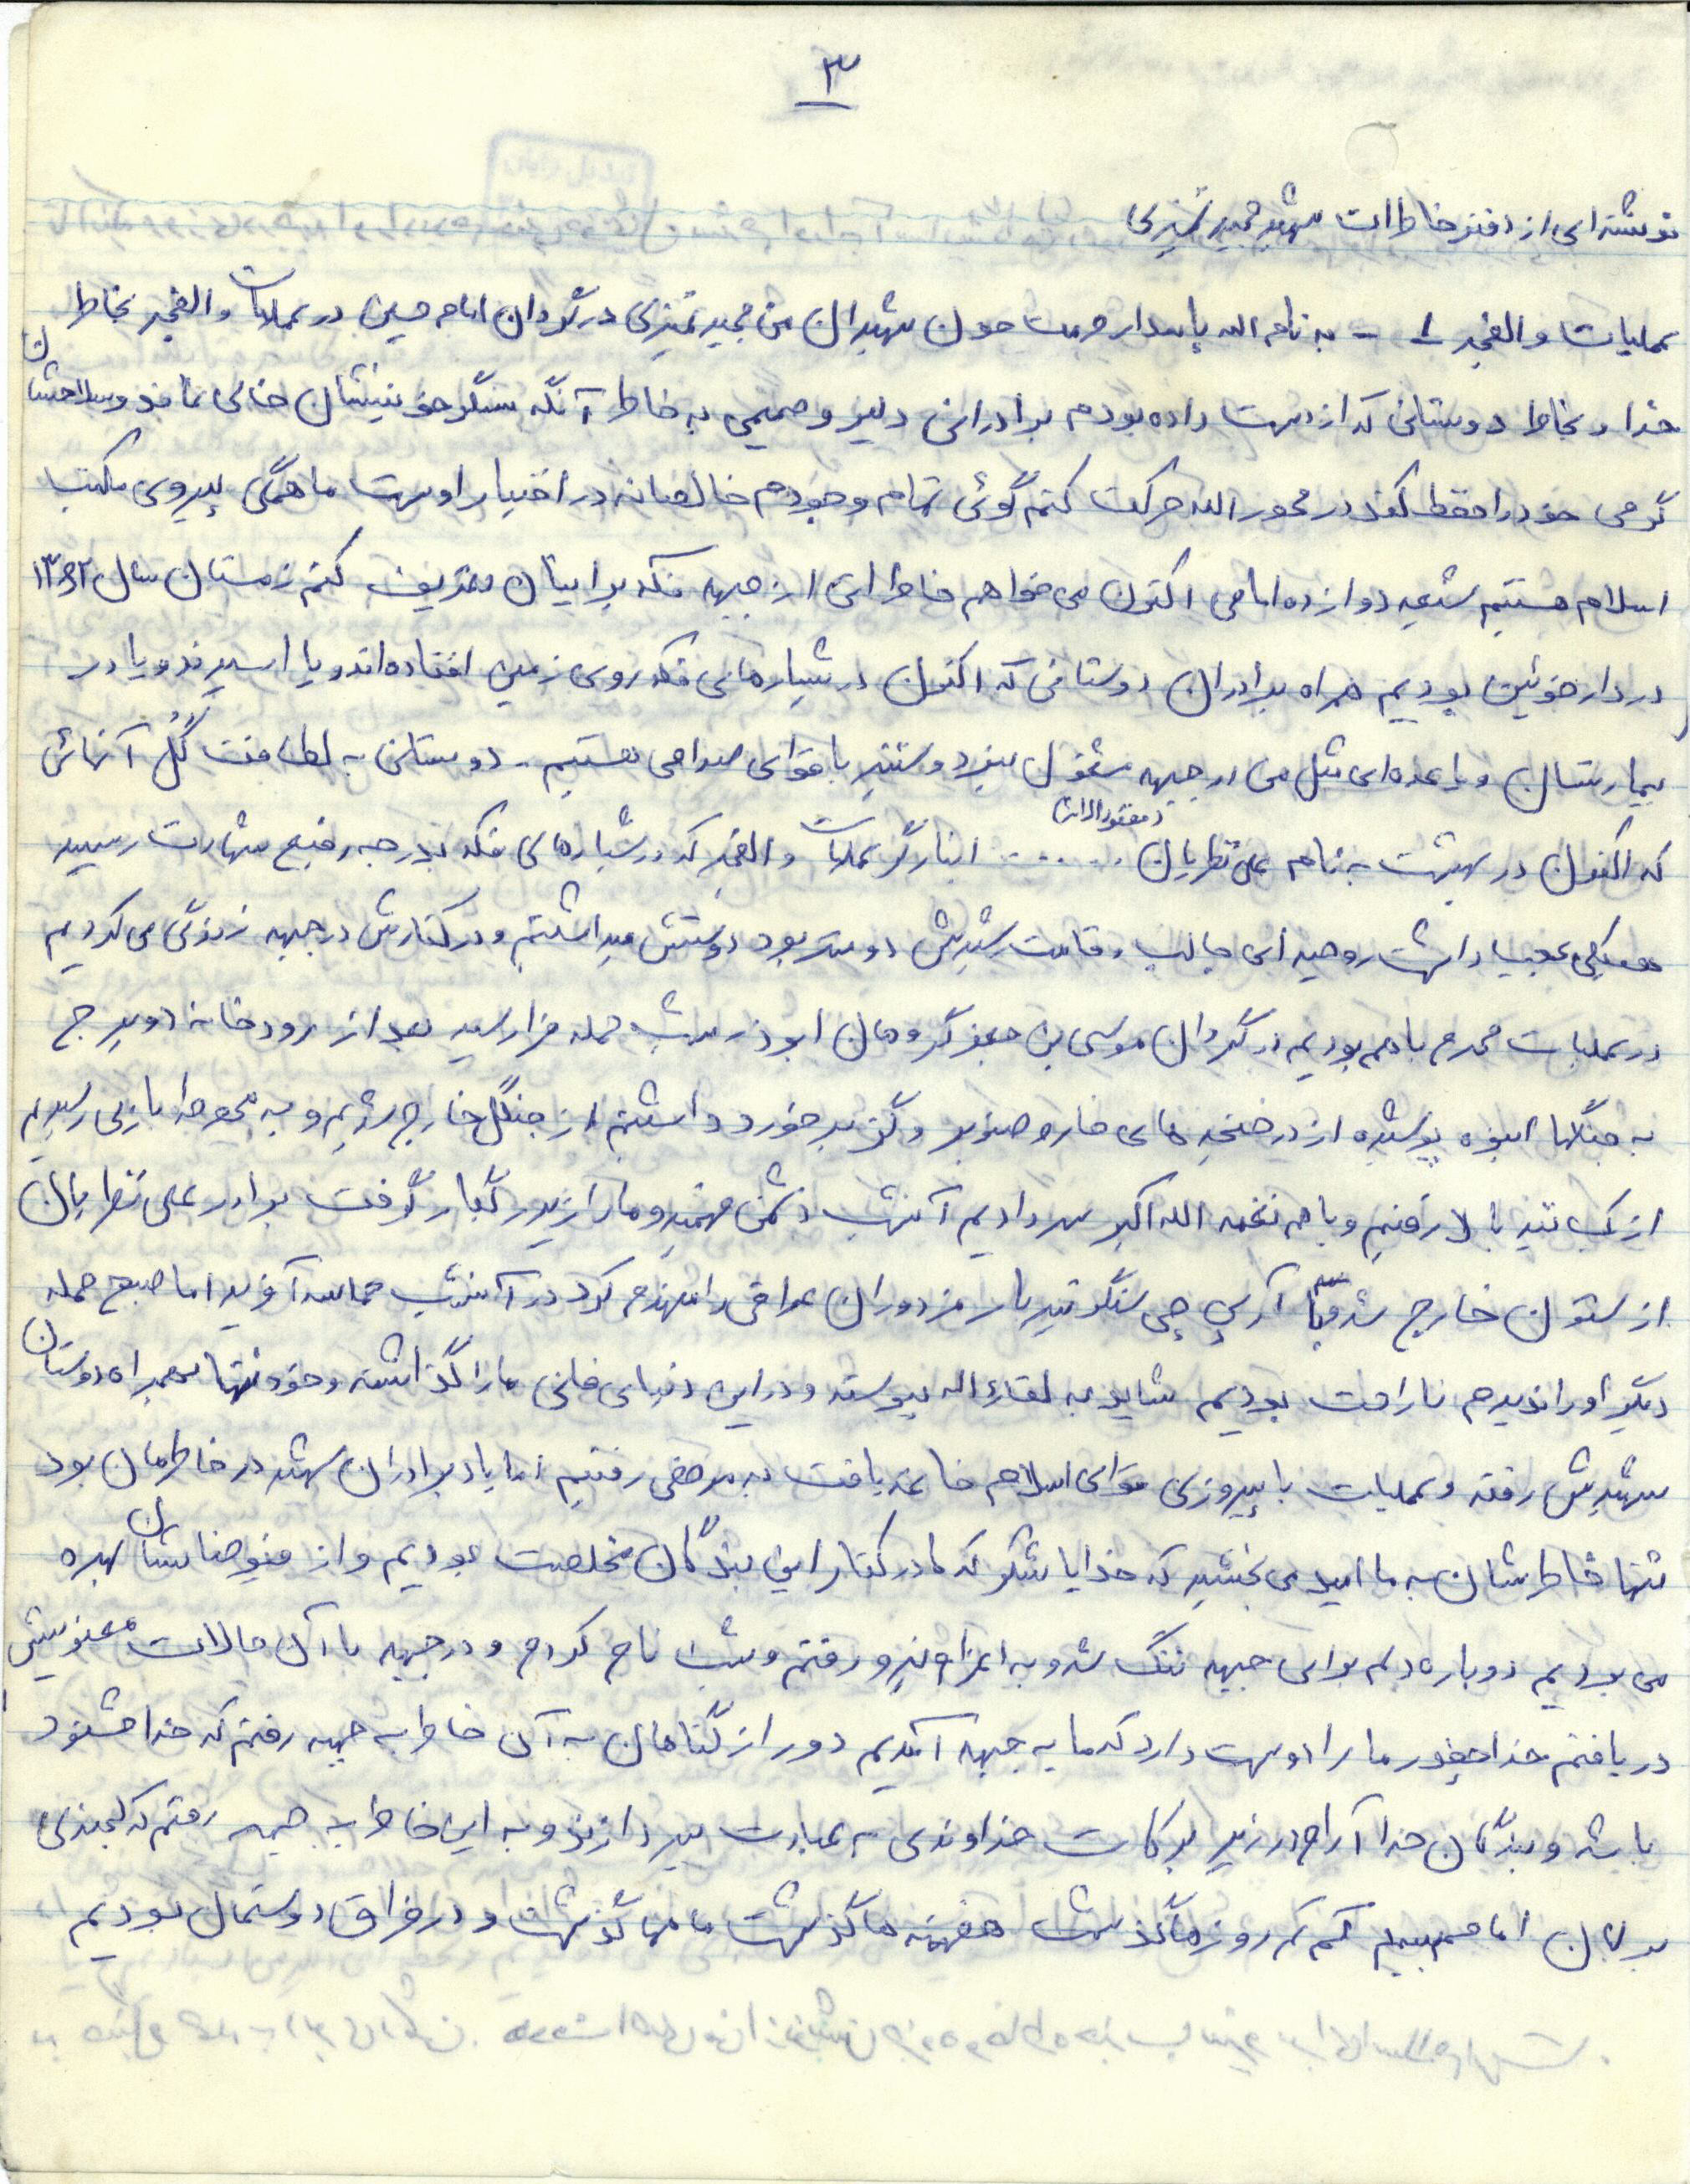 ۳
نوشته ای از دفتر خاطرات شهید مجید تبریزی
عملیات والفجر ۱ - به نام الله پاسدار حرمت خون شهیدان من مجید تبریزی در گردان امام حسین در عملیات والفجر بخاطر
خدا و بخاطر دوستانی که از دست داده بودم برادرانی دلیر و صمیمی به خاطر آنکه سنگر خونینشان خالی نماند و سلاحشان
گرمی خود را حفظ کند در محور الله حرکت کنم گوئی تمام وجودم خالصانه در اختیار اوست ما همگی پیروی مکتب
اسلام هستیم شیعه دوازده امامی اکنون می خواهم خاطراتی از جبهه فکه برایتان تعریف کنم زمستان سال ۱۳۶۲
در دارخوئین بودیم همراه برادران دوستانی که اکنون در شیارهای فکه روی زمین افتاده اند و یا اسیرند و یا در
بیمارستان و یا عده ای مثل من در جبهه مشغول نبرد و ستیز با قوای صدامی هستیم - دوستانی به لطافت گُل آنهائی
که اکنون در بهشت به نام علی نظریان ...... (مفقودالاثر) ایثارگر عملیات والفجر که در شیارهای فکه بدرجه رفیع شهادت رسید
عجیب داشت روحیه ای جالب و قامت رشیدش دوستر بود دوستش میداشتم و در کنارش در جبهه زندگی می کردیم
در عملیات محرم با هم بودیم در گردان موسی بن جعفر گروهان ابوذر شب حمله فرا رسید بعد از رودخانه دویرج
به جنگلها انبوه پوشیده از درختچه های خار و صنوبر و گز برخورد داشتیم از جنگل خارج شدیم و به محوطه بازی رسیدیم
از تپه بالا رفتیم و با هم نغمه الله اکبر سر دادیم آنشب دشمن فهمید و ما را زیر رگبار گرفت برادر علی نظریان
از ستون خارج شد و با آرپی چی سنگر تیربار مزدوران عراقی را منهدم کرد در آنشب حماسه آفرید اما صبح حمله
دیگر او را ندیدم ناراحت بودیم شاید به لقاءاله پیوسته و در این دنیای فانی ما را گذاشته و خود تنها همراه دوستان
شهیدش رفته و عملیات با پیروزی قوای اسلام خاتمه یافت به مرخصی رفتیم اما یاد برادران شهید در خاطرمان بود
تنها خاطرشان به ما امید می بخشید که خدایا شکر که ما در کنار این بندگان مخلصت بودیم و از فیوضاتشان بهره
می بردیم دوباره دلم برای جبهه تنگ شد و به اعزام نیرو رفتم و ثبت نام کردم و در جبهه با آن حالات معنویش
دریافتم خدا چقدر ما را دوست دارد که ما به جبهه آمدیم دور از گناهان به آن خاطر به جبهه رفتم که خدا خشنود
باشد و بندگان خدا آرام در زیر برکات خداوندی به عبادت بپردازند و به این خاطر به جبهه رفتم که لبخندی
بر لبان امام ببینم کم کم روزها گذشت هفته ها گذشت ماهها گذشت و در فراق دوستمان بودیم